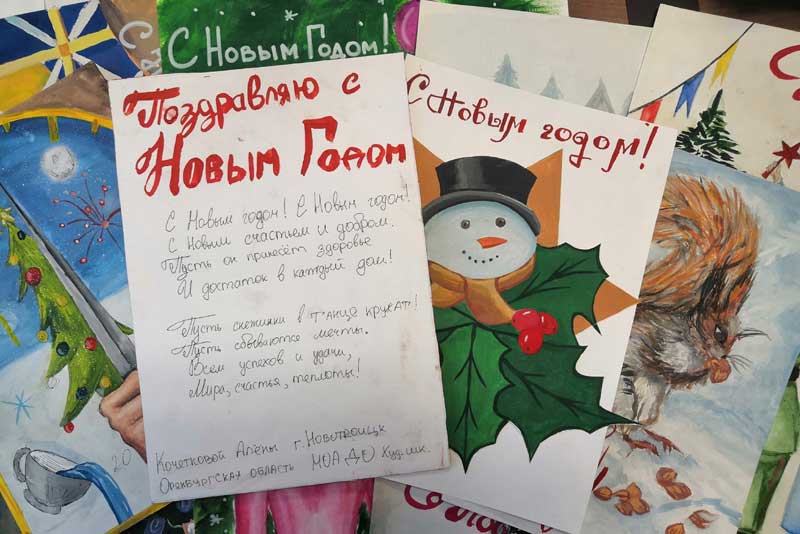 С Новым Годом!
Поздравляю с
Новым Годом
С Новым годом! С Новым годом!
С Новым счастьем и добром.
Пусть он принесёт здоровье
И достаток в каждый дом!
Пусть снежинки в танце кружат!
Пусть сбываются мечты.
Всем успехов и удачи,
Мира, счастья, теплоты!
Кочетковой Алёны г. Новотроицк
Оренбургская область МОАДО Худ. шк.
С Новым годом!
20